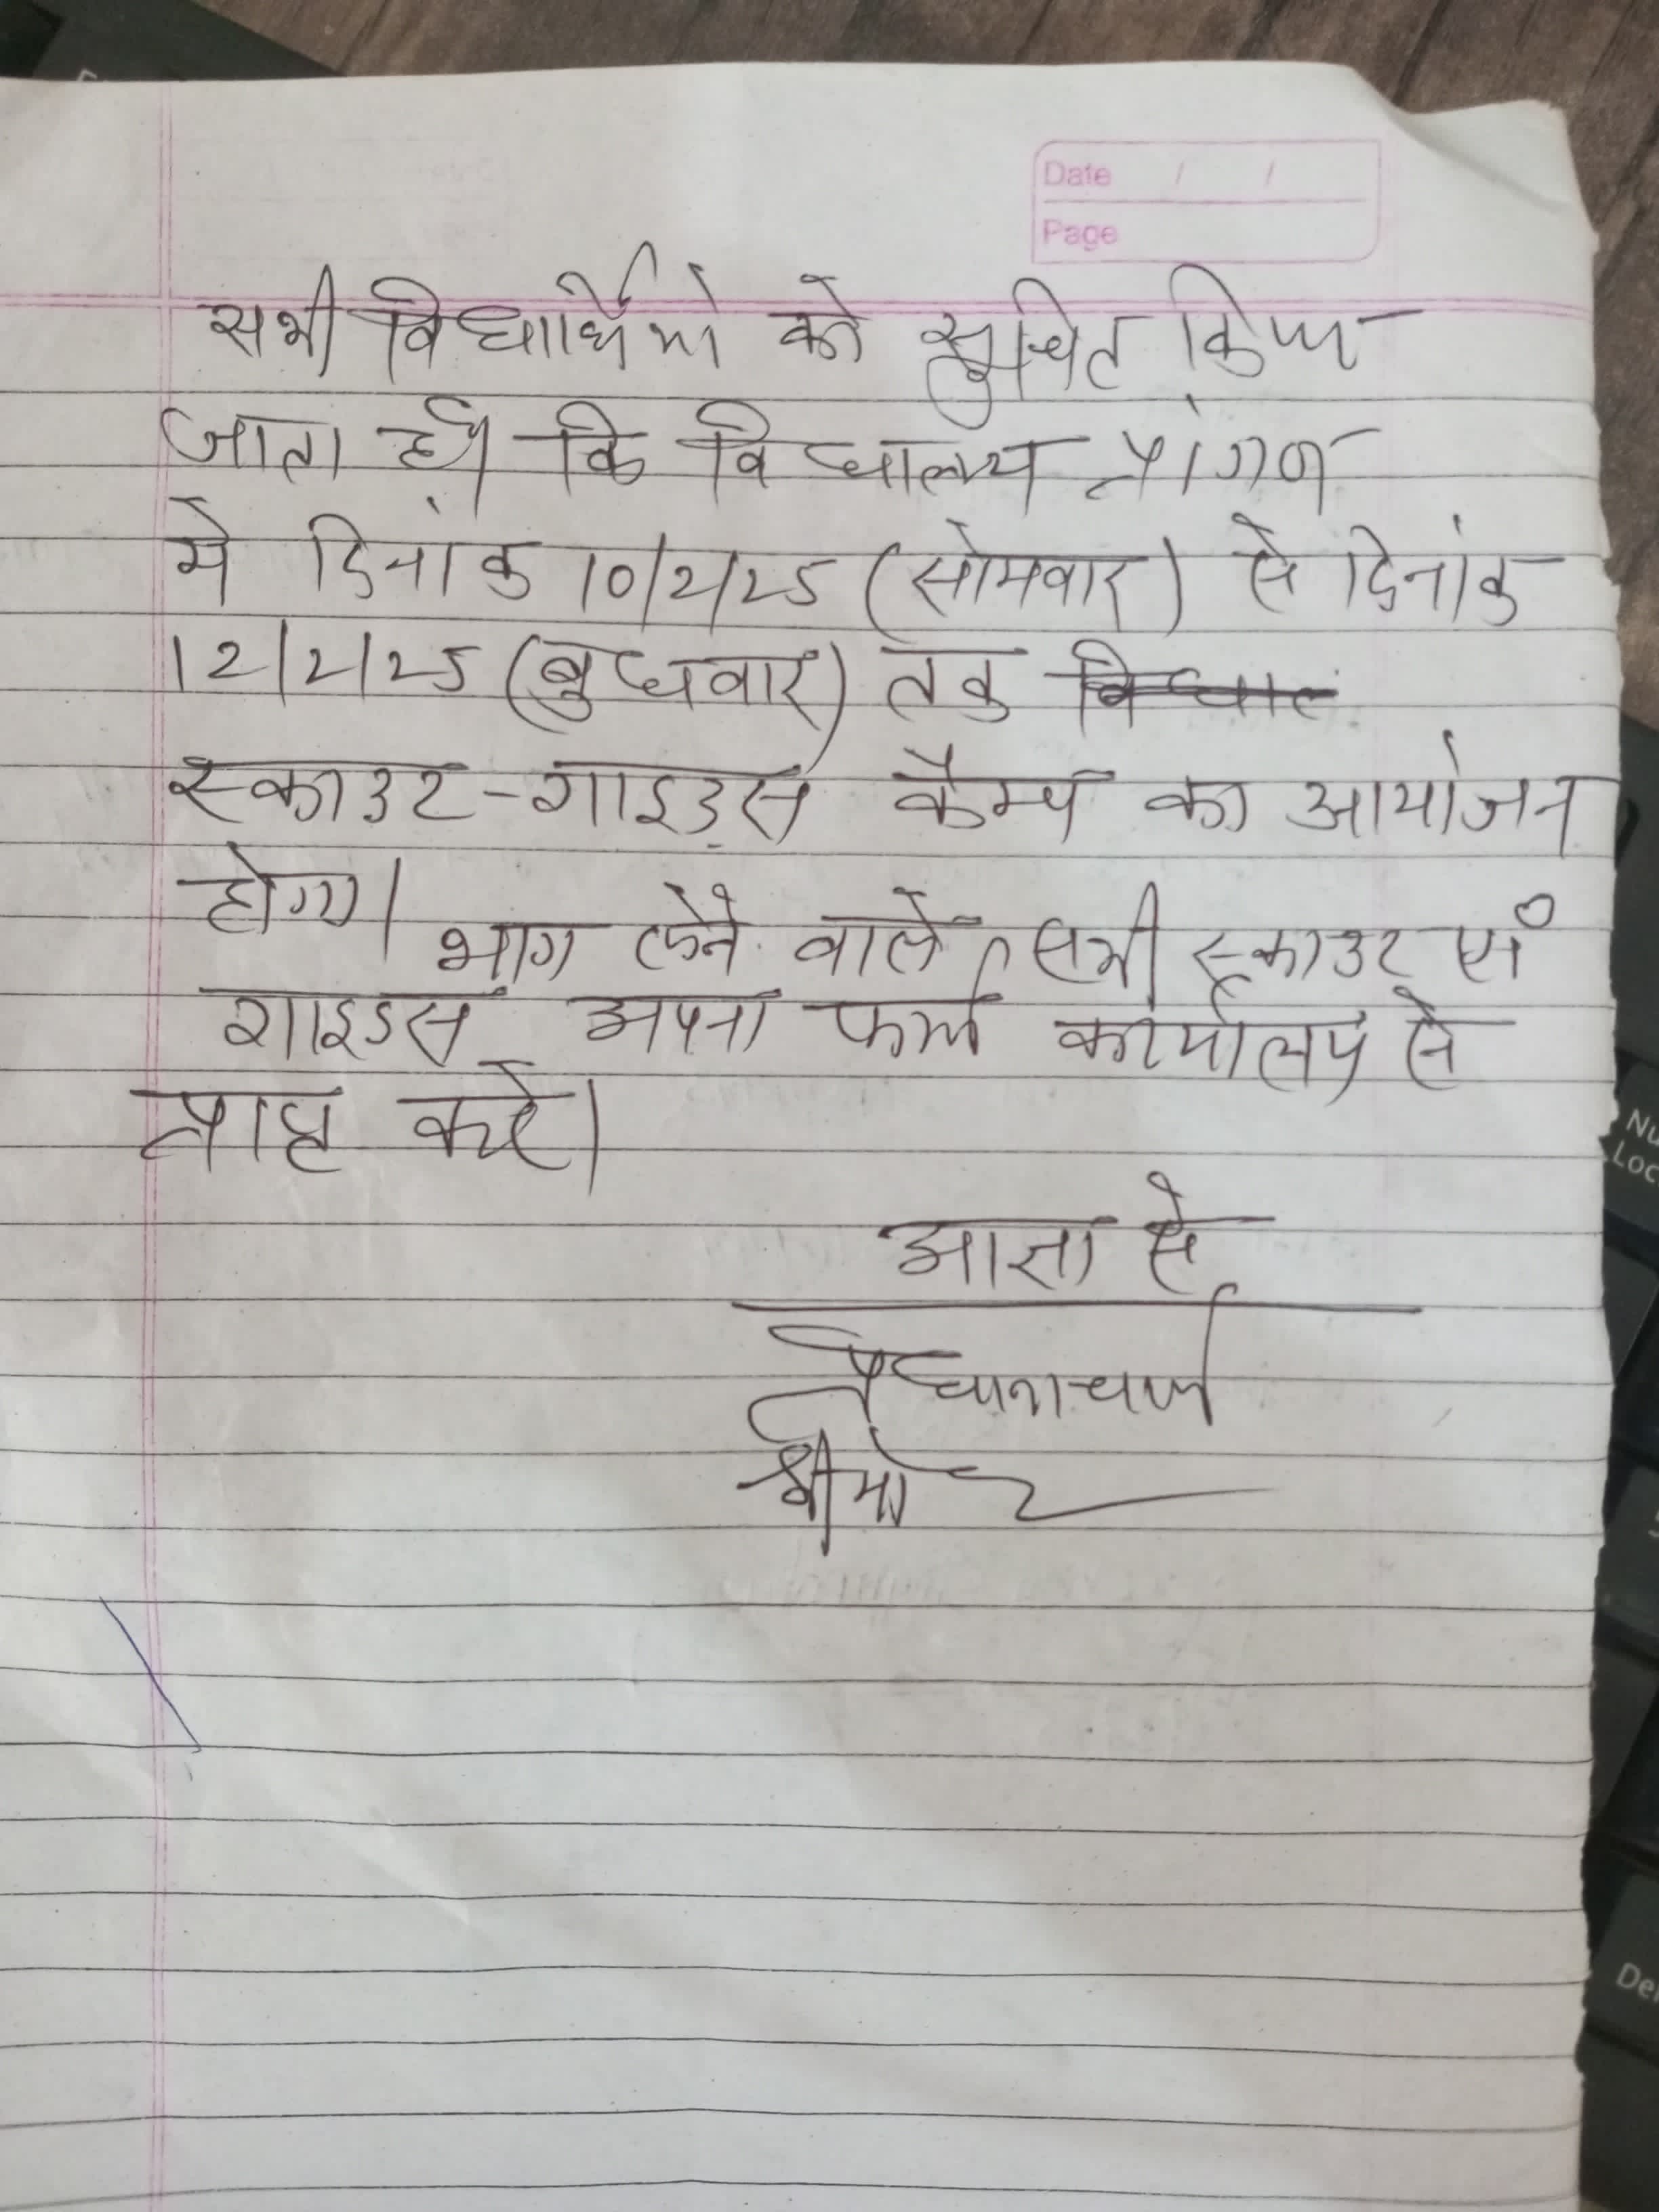 Date / /
Page
सभी विद्यार्थियो को सुचित किया
जाता है कि विद्यालय प्रांगण
मे दिनांक 10/2/25 (सोमवार) से दिनांक
12/2/25 (बुधवार) तक विद्याल
स्काउट-गाइड्स कैम्प का आयोजन
होगा। भाग लेने वाले सभी स्काउट एवं
गाइडस अपना फार्म कार्यालय से
प्राप्त करे।
आज्ञा से
प्रधानाचार्य